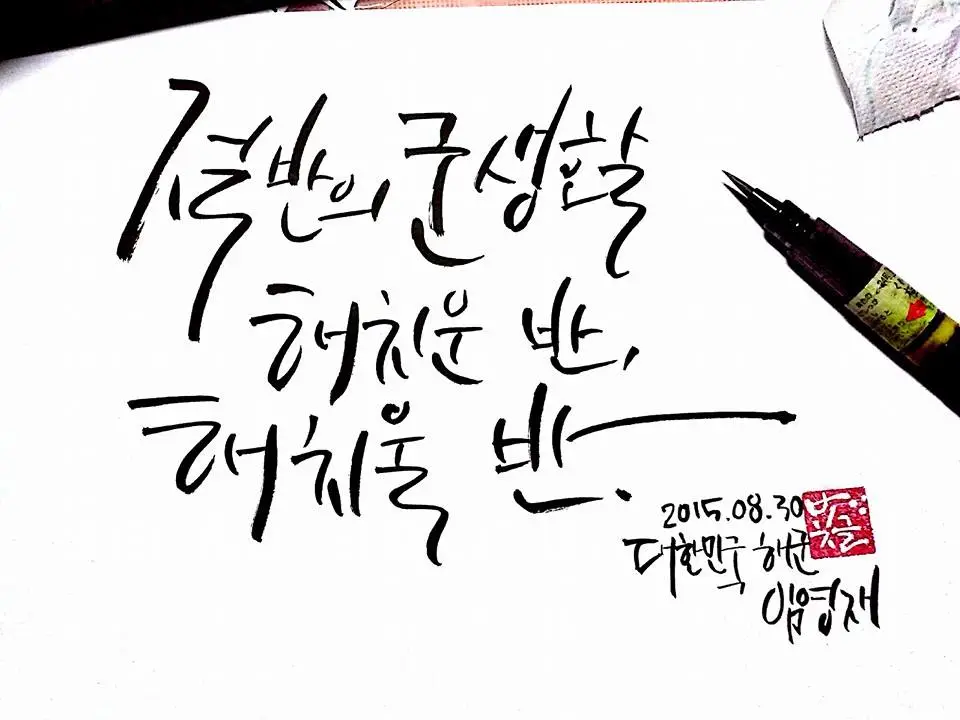 절반의 군생활
해치운 반,
해치울 반.
2015.08.30
대한민국 해군
임영재